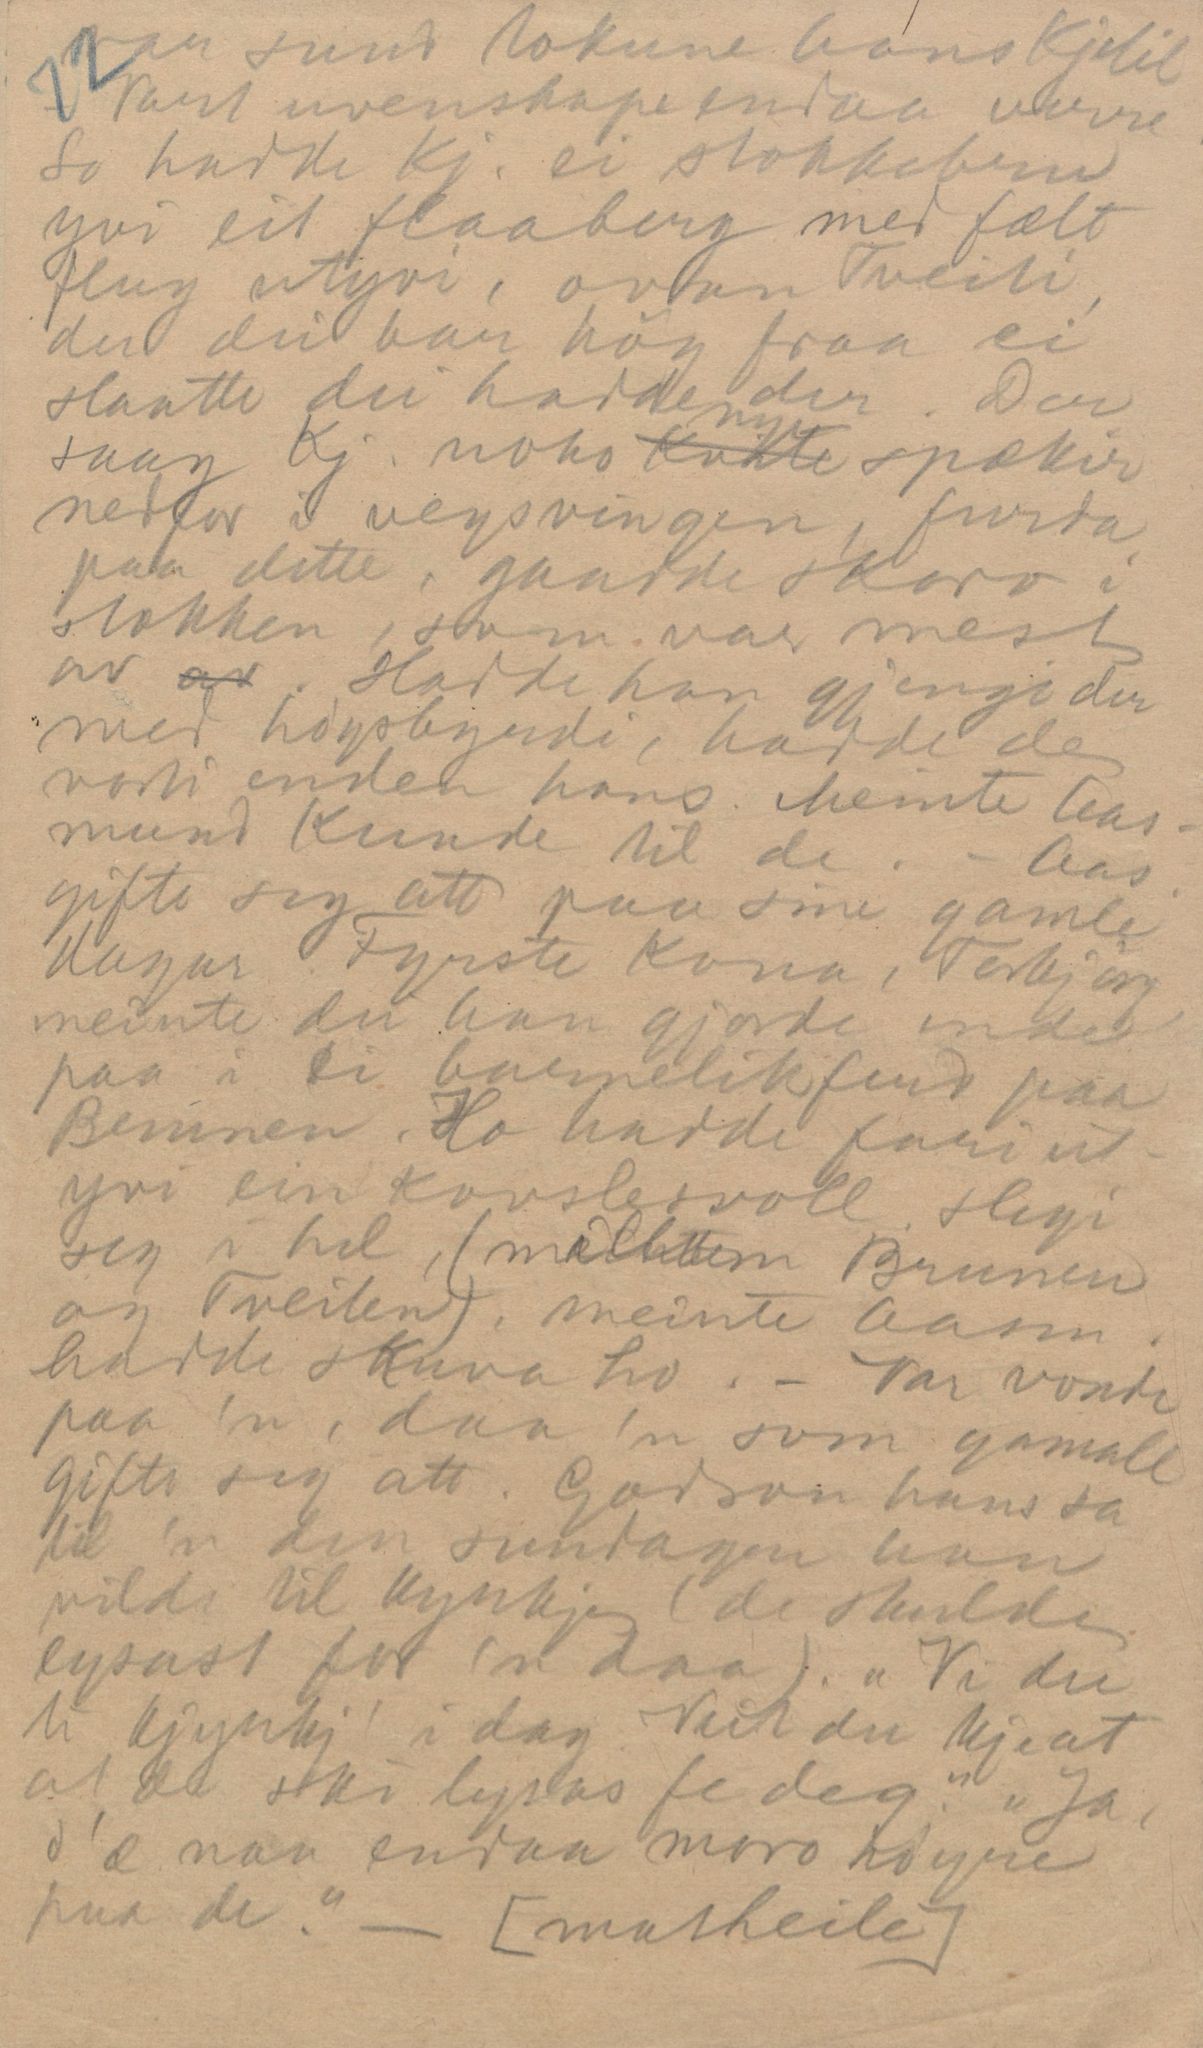 22
var sund tokune hans Kjetil
Vart uvenskape endaa verre
So hadde Kj. ei stokkebru
yvi eit flaaberg med fælt
flug utyvi, ovan Tveiti,
der dei bar höy fraa ei
slaatte dei hadde der. Der
saag Kj. noko Kvite nye spækir
nedfor i vegsvingen, furda
paa dette, gaadde skaro i
stokken, som var mest
av av. Hadde han gjengi der
med höysbyrdi, hadde de
vorti enden hans. Meinte Aas-
mund Kunde til de. - Aas.
gifte seg att paa sine gamle
dagar. Fyrste Kona, Torbjörg
meinte dei han gjorde ende
paa i ei barnelikferd paa
Berunen. Ho hadde fari ut-
yvi ein Kovslesvoll, slegi
seg i hel, (millom Brunen
og Tveiten). meinte Aasm.
hadde skuva ho. - Var vonde
paa 'n, daa 'n som gamall
gifte seg att. Godson hans sa
til 'n den sundagen han
vilde til kyrkje (de skulde
lysast for 'n daa). "Vi du
ti kjyrkj' i dag. Veit du kje at
at de ska lysas fe deg." "Ja,
d'æ naa endaa moro höyre
paa de." — [matheile]